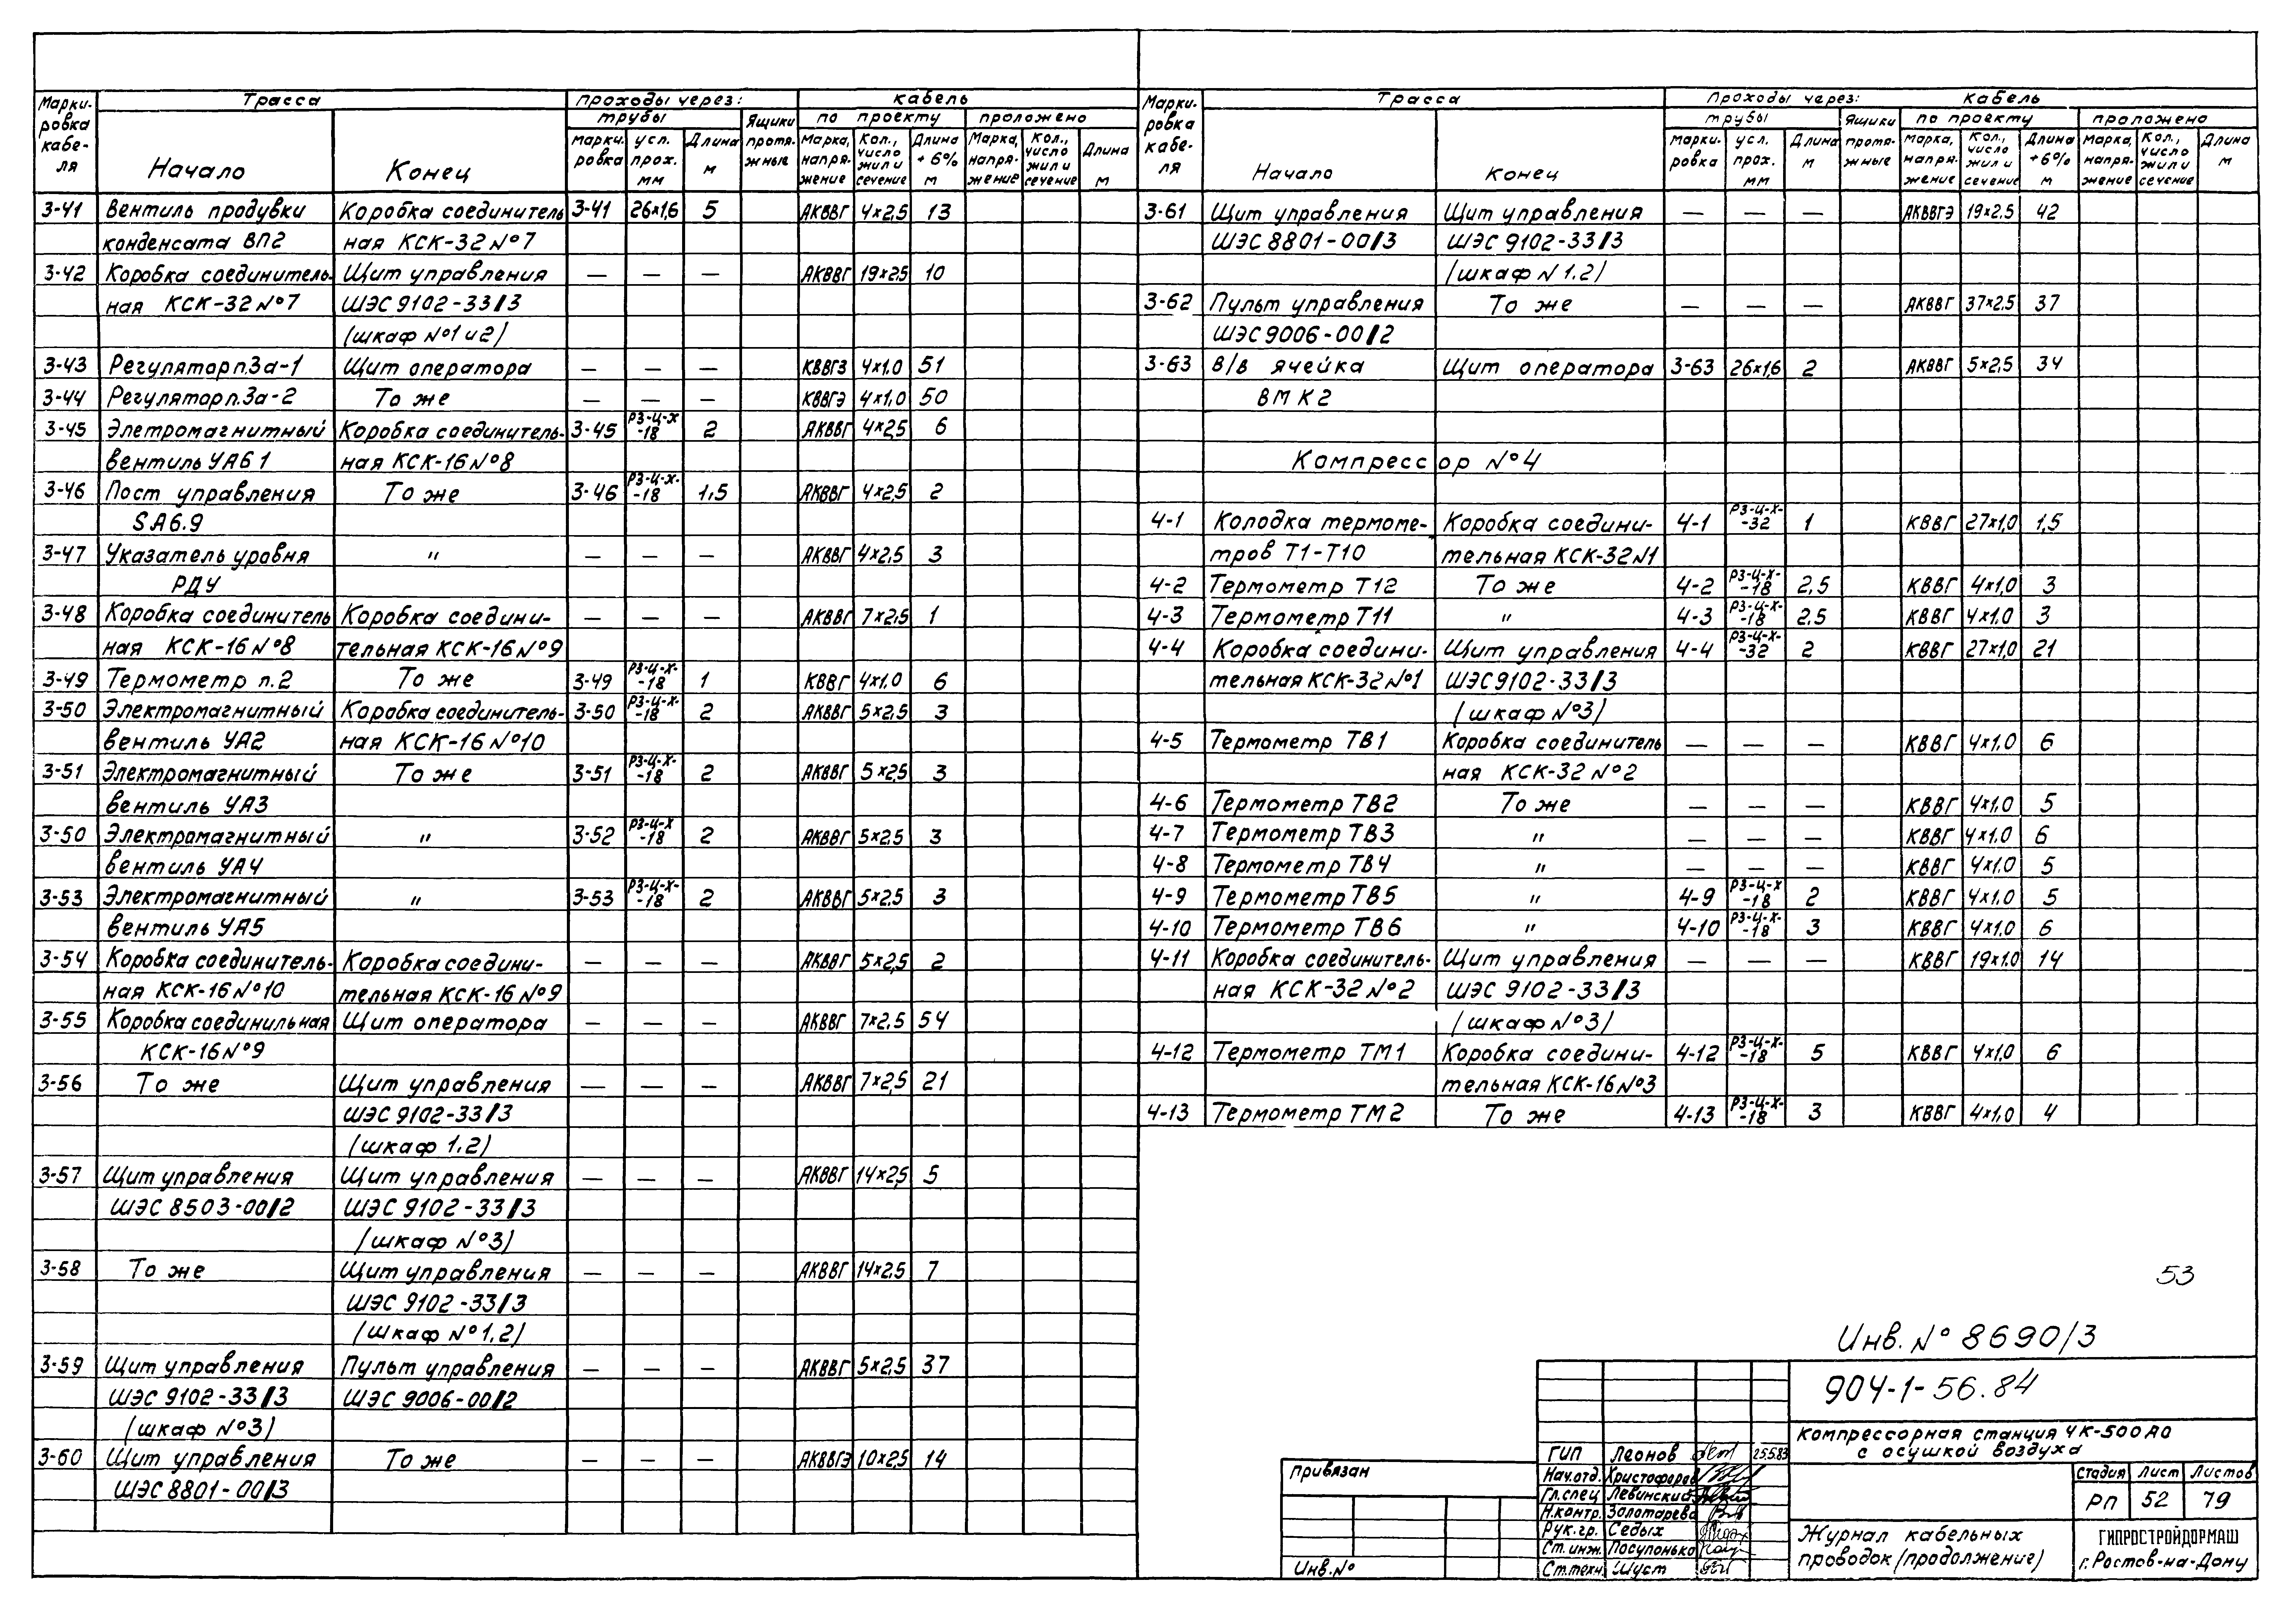 Марки-ровка кабе-ля | Трасса | проходы через: | кабель
трубы | Ящики протя-жные | по проекту | проложено
Начало | Конец | марки-ровка | усл. прох. мм | Длина м | Марка, напря-жение | Кол., число жил и сечение | Длина +6% м | Марка, напря-жение | Кол., число жил и сечение | Длина м
3-41 | Вентиль продувки | Коробка соединитель | 3-41 | 26×1,6 | 5 | АКВВГ | 4×2,5 | 13
конденсата ВП2 | ная КСК-32 №7
3-42 | Коробка соединитель- | Щит управления | — | — | — | АКВВГ | 19×2,5 | 10
ная КСК-32 №7 | ШЭС 9102-33/3
(шкаф №1 и 2)
3-43 | Регулятор п.3а-1 | Щит оператора | — | — | — | КВВГЭ | 4×1,0 | 51
3-44 | Регулятор п.3а-2 | То же | — | — | — | КВВГЭ | 4×1,0 | 50
3-45 | Элетромагнитный | Коробка соединитель- | 3-45 | РЗ-Ц-Х-18 | 2 | АКВВГ | 4×2,5 | 6
вентиль УА6 1 | ная КСК-16 №8
3-46 | Пост управления | То же | 3-46 | РЗ-Ц-Х-18 | 1,5 | АКВВГ | 4×2,5 | 2
SA6.9
3-47 | Указатель уровня | " | — | — | — | АКВВГ | 4×2,5 | 3
РДУ
3-48 | Коробка соединитель | Коробка соедини- | — | — | — | АКВВГ | 7×2,5 | 1
ная КСК-16 №8 | тельная КСК-16 №9
3-49 | Термометр п.2 | То же | 3-49 | РЗ-Ц-Х-18 | 1 | КВВГ | 4×1,0 | 6
3-50 | Электромагнитный | Коробка соединитель- | 3-50 | РЗ-Ц-Х-18 | 2 | АКВВГ | 5×2,5 | 3
вентиль УА2 | ная КСК-16 №10
3-51 | Электромагнитный | То же | 3-51 | РЗ-Ц-Х-18 | 2 | АКВВГ | 5×2,5 | 3
вентиль УА3
3-50 | Электромагнитный | " | 3-52 | РЗ-Ц-Х-18 | 2 | АКВВГ | 5×2,5 | 3
вентиль УА4
3-53 | Электромагнитный | " | 3-53 | РЗ-Ц-Х-18 | 2 | АКВВГ | 5×2,5 | 3
вентиль УА5
3-54 | Коробка соединитель- | Коробка соедини- | — | — | — | АКВВГ | 5×2,5 | 2
ная КСК-16 №10 | тельная КСК-16 №9
3-55 | Коробка соединильная | Щит оператора | — | — | — | АКВВГ | 7×2,5 | 54
КСК-16 №9
3-56 | То же | Щит управления | — | — | — | АКВВГ | 7×2,5 | 21
ШЭС 9102-33/3
(шкаф 1,2)
3-57 | Щит управления | Щит управления | — | — | — | АКВВГ | 14×2,5 | 5
ШЭС 8503-00/2 | ШЭС 9102-33/3
(шкаф №3)
3-58 | То же | Щит управления | — | — | — | АКВВГ | 14×2,5 | 7
ШЭС 9102-33/3
(шкаф №1,2)
3-59 | Щит управления | Пульт управления | — | — | — | АКВВГ | 5×2,5 | 37
ШЭС 9102-33/3 | ШЭС 9006-00/2
(шкаф №3)
3-60 | Щит управления | То же | — | — | — | АКВВГЭ | 10×2,5 | 14
ШЭС 8801-00/3
Марки-ровка кабе-ля | Трасса | проходы через: | кабель
трубы | Ящики протя-жные | по проекту | проложено
Начало | Конец | марки-ровка | усл. прох. мм | Длина м | Марка, напря-жение | Кол., число жил и сечение | Длина +6% м | Марка, напря-жение | Кол., число жил и сечение | Длина м
3-61 | Щит управления | Щит управления | — | — | — | АКВВГЭ | 19×2,5 | 42
ШЭС 8801-00/3 | ШЭС 9102-33/3
(шкаф N 1,2)
3-62 | Пульт управления | То же | — | — | — | АКВВГ | 37×2,5 | 37
ШЭС 9006-00/2
3-63 | В/в ячейка | Щит оператора | 3-63 | 26×1,6 | 2 | АКВВГ | 5×2,5 | 34
ВМК2
Компрессор №4
4-1 | Колодка термоме- | Коробка соедини- | 4-1 | РЗ-Ц-Х-32 | 1 | КВВГ | 27×1,0 | 1,5
тров Т1-Т10 | тельная КСК-32 N1
4-2 | Термометр Т12 | То же | 4-2 | РЗ-Ц-Х-18 | 2,5 | КВВГ | 4×1,0 | 3
4-3 | Термометр Т11 | " | 4-3 | РЗ-Ц-Х-18 | 2,5 | КВВГ | 4×1,0 | 3
4-4 | Коробка соедини- | Щит управления | 4-4 | РЗ-Ц-Х-32 | 2 | КВВГ | 27×1,0 | 21
тельная КСК-32 №1 | ШЭС 9102-33/3
(шкаф №3)
4-5 | Термометр ТВ1 | Коробка соединитель | — | — | — | КВВГ | 4×1,0 | 6
ная КСК-32 №2
4-6 | Термометр ТВ2 | То же | — | — | — | КВВГ | 4×1,0 | 5
4-7 | Термометр ТВ3 | " | — | — | — | КВВГ | 4×1,0 | 6
4-8 | Термометр ТВ4 | " | — | — | — | КВВГ | 4×1,0 | 5
4-9 | Термометр ТВ5 | " | 4-9 | РЗ-Ц-Х-18 | 2 | КВВГ | 4×1,0 | 5
4-10 | Термометр ТВ6 | " | 4-10 | РЗ-Ц-Х-18 | 3 | КВВГ | 4×1,0 | 6
4-11 | Коробка соединитель- | Щит управления | — | — | — | КВВГ | 19×1,0 | 14
ная КСК-32 №2 | ШЭС 9102-33/3
(шкаф №3)
4-12 | Термометр ТМ1 | Коробка соедини- | 4-12 | РЗ-Ц-Х-18 | 5 | КВВГ | 4×1,0 | 6
тельная КСК-16 №3
4-13 | Термометр ТМ2 | То же | 4-13 | РЗ-Ц-Х-18 | 3 | КВВГ | 4×1,0 | 4
53
Инв. № 8690/3
904-1-56.84
Компрессорная станция 4К-500АО
с осушкой воздуха
Привязан
Инв. №
ГИП Леонов 25.5.83
Нач.отд. Христофоров
Гл.спец Левинский
Н.контр. Золотарева
Рук.гр. Седых
Ст.инж. Посупонько
Ст.техн. Шуст
Стадия | Лист | Листов
РП | 52 | 79
Журнал кабельных
проводок (продолжение)
ГИПРОСТРОЙДОРМАШ
г. Ростов-на-Дону